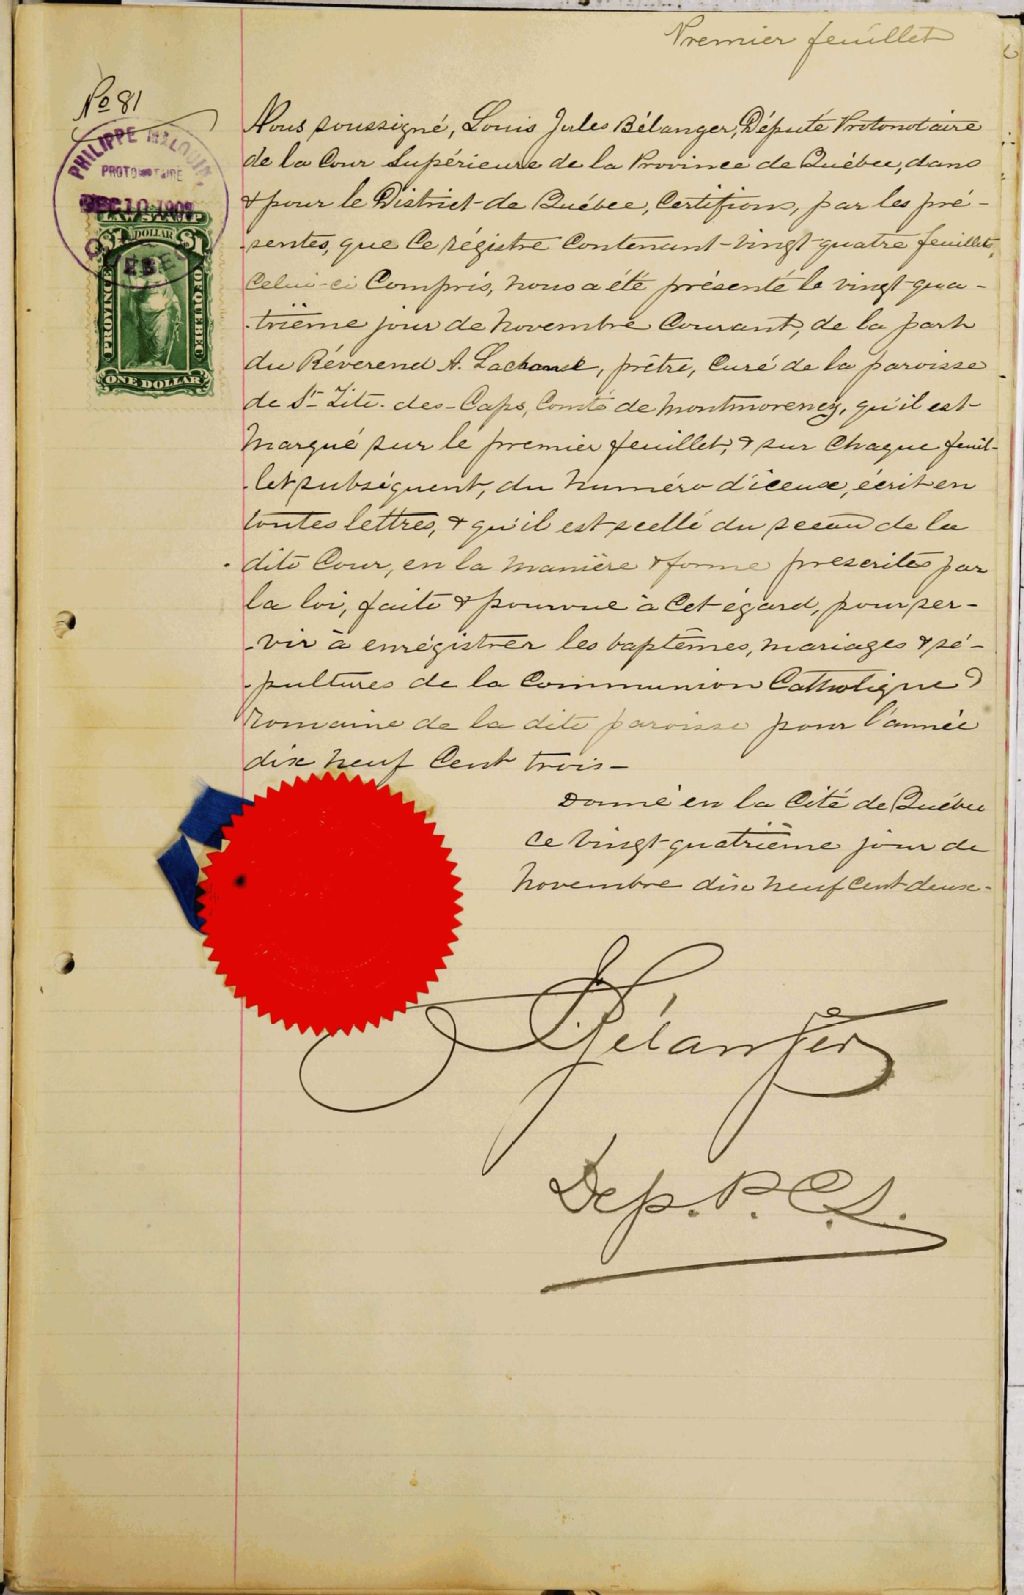 Premier feuillet
No 81
PHILIPPE MALOUIN
PROTONOTAIRE
DEC 10 1902
QUEBEC
$1 DOLLAR $1
PROVINCE OF QUEBEC
ONE DOLLAR
Nous soussigné, Louis Jules Bélanger, Député Protonotaire
de la Cour Supérieure de la Province de Québec, dans
& pour le District de Québec, Certifions, par les pré-
-sentes, que ce régistre contenant vingt-quatre feuillets,
celui-ci compris, nous a été présenté le vingt-qua-
-trième jour de Novembre courant, de la part
du Révérend A. Lachance, prêtre, curé de la paroisse
de St Tite-des-Caps, Comté de Montmorency, qu'il est
marqué sur le premier feuillet, & sur chaque feuil-
-let subséquent, du numéro d'iceux, écrit en
toutes lettres, & qu'il est scellé du sceau de la
dite Cour, en la manière & forme prescrites par
la loi, faite & pourvue à cet égard, pour ser-
-vir à enrégistrer les baptêmes, mariages & sé-
-pultures de la Communion Catholique
Romaine de la dite paroisse pour l'année
dix neuf cent trois-
Donné en la Cité de Québec
ce vingt-quatrième jour de
Novembre dix neuf cent deux-
Bélanger
Dep. P. C. S.